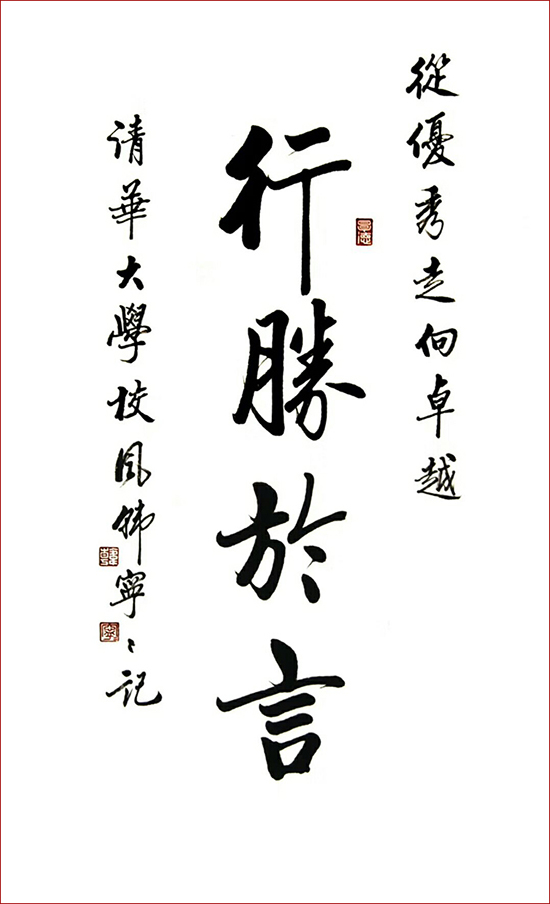 從優秀走向卓越
行勝於言
请華大學校風韩寧〻記